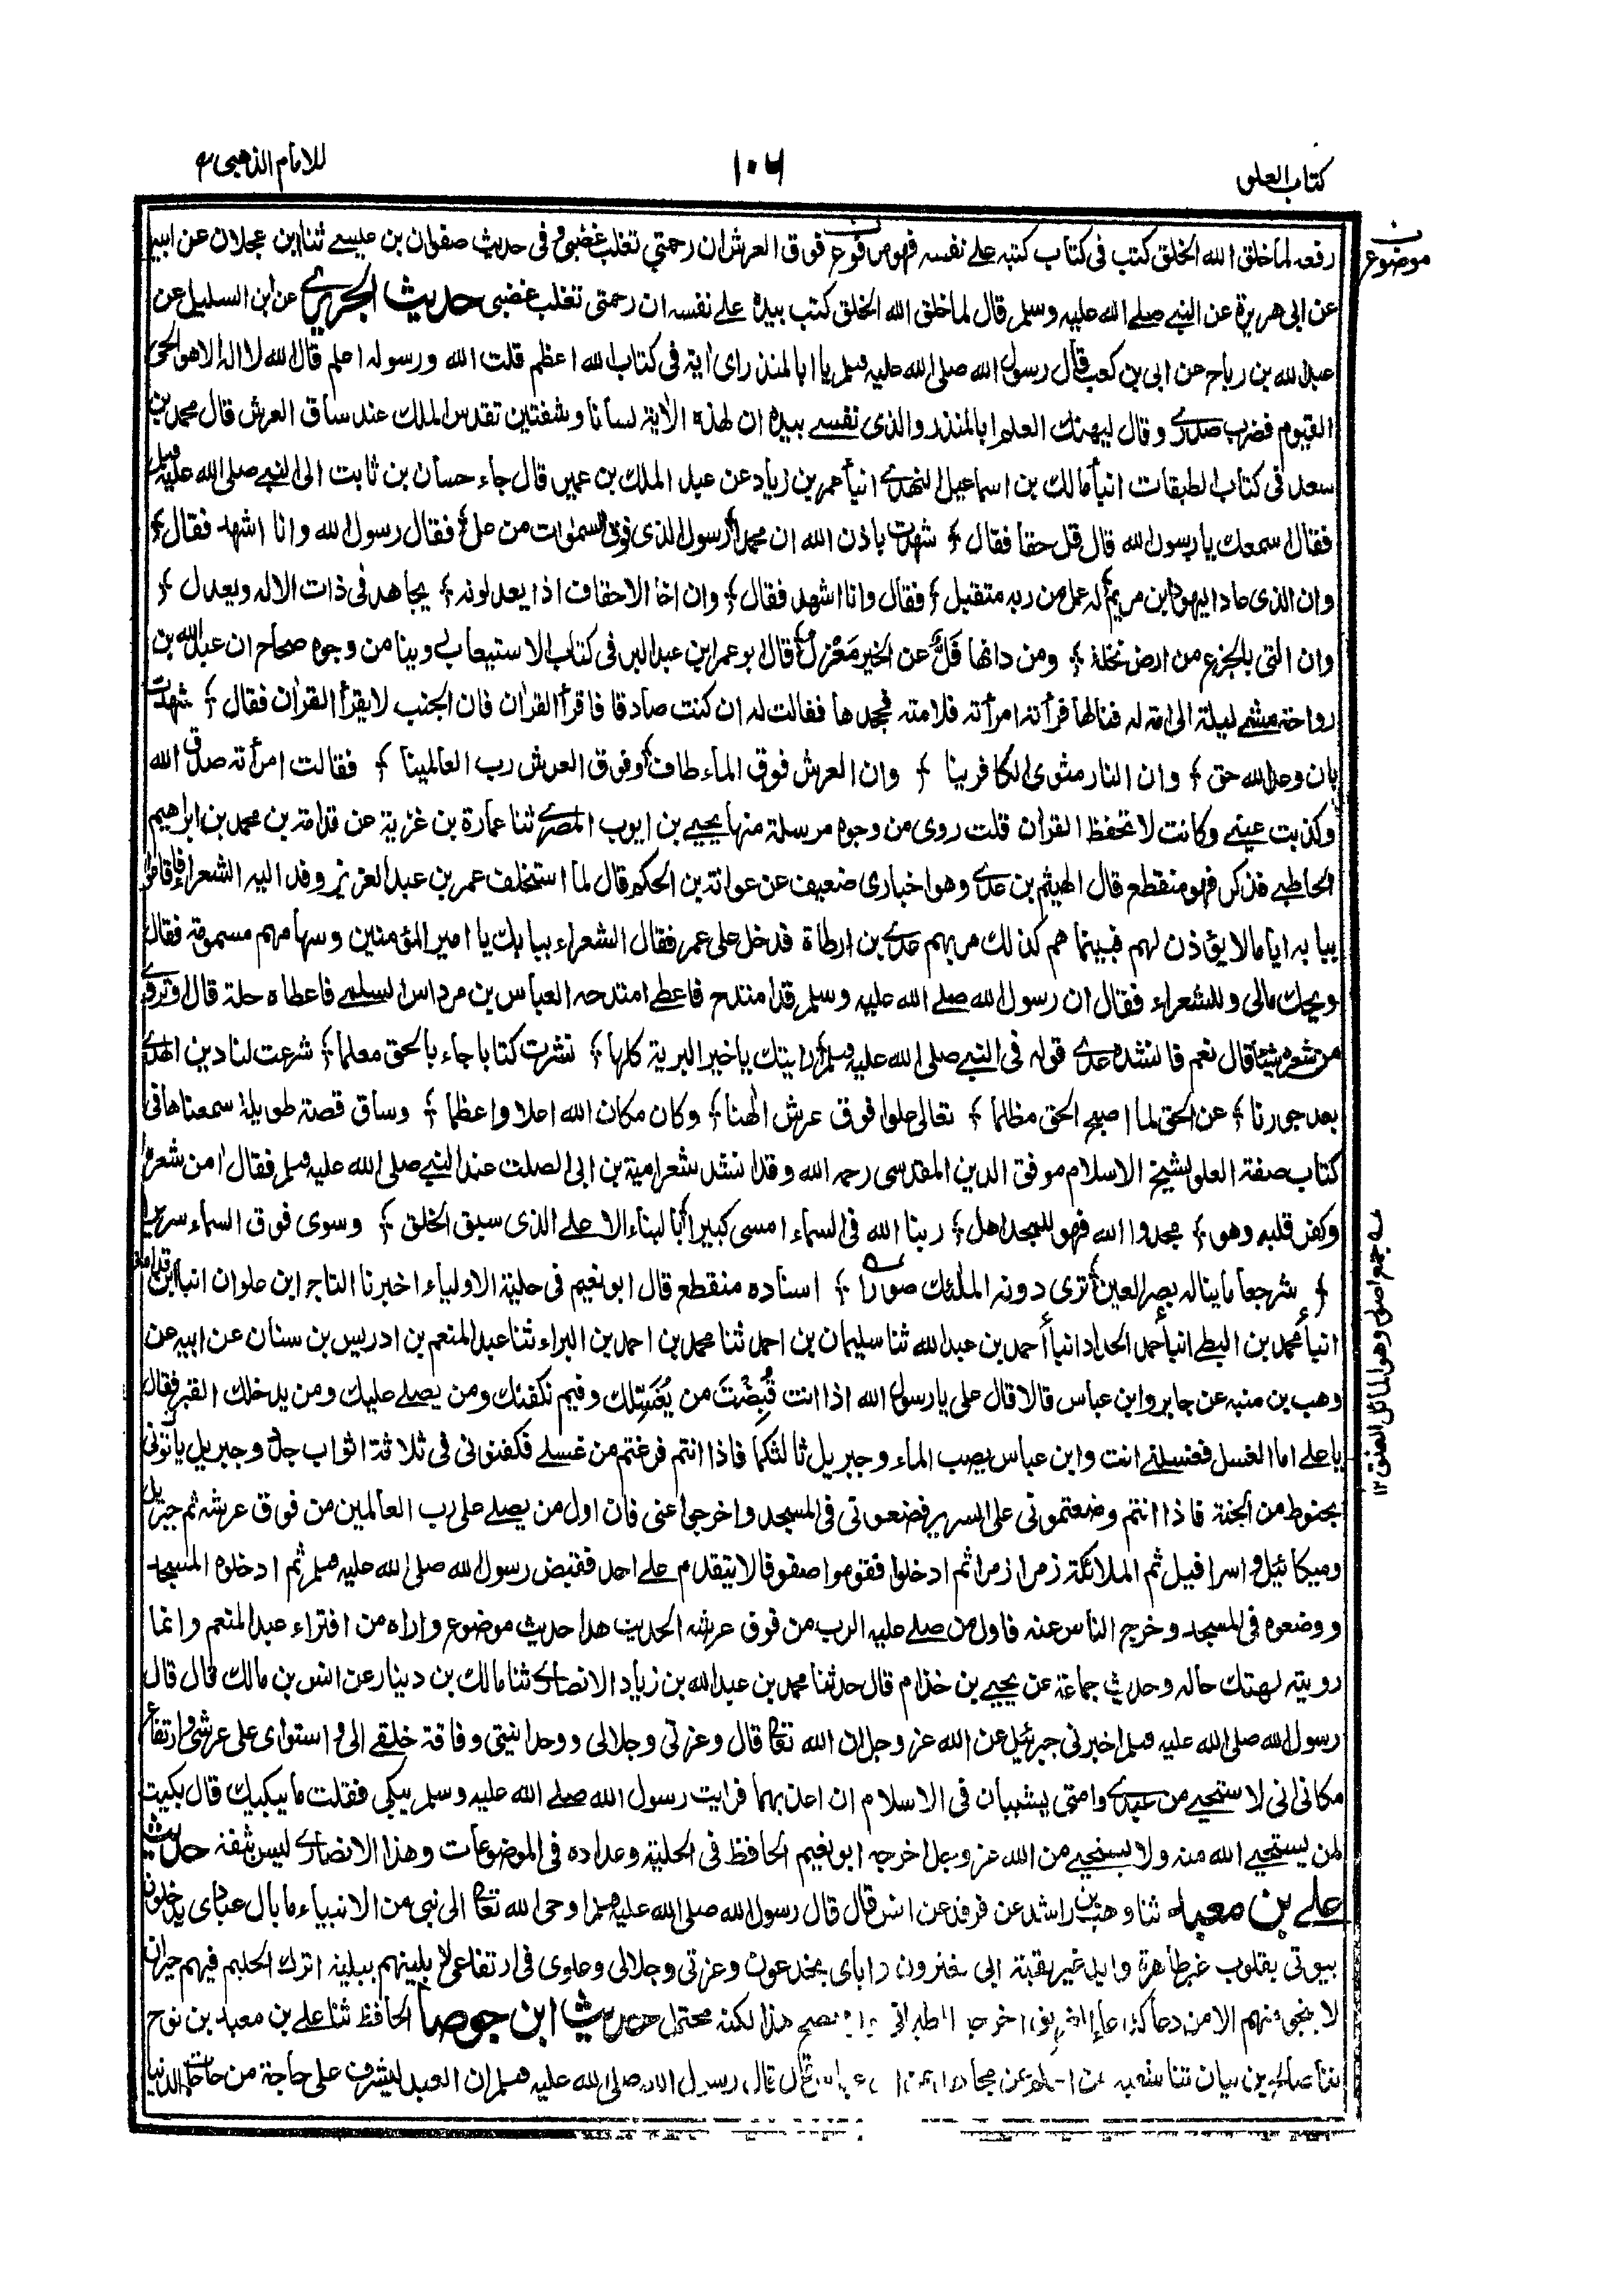 كتاب العلو
١٠٦
للامام الذهبى
موضوع
رفعه لما خلق الله الخلق كتب فى كتاب كتبه على نفسه فهو مرفوع فوق العرش ان رحمتي تغلب غضبى و فى حديث صفوان بن عيسى ثنا ابن عجلان عن ابيه
عن ابى هريرة عن النبي صلى الله عليه وسلم قال لما خلق الله الخلق كتب بيده على نفسه ان رحمتى تغلب غضبى حديث الجريرى عن ابى السليل عن
عبد الله بن رباح عن ابى بن كعب قال رسول الله صلى الله عليه وسلم يا ابا المنذر اى اية فى كتاب الله اعظم قلت الله ورسوله اعلم قال الله لا اله الا هو الحى
القيوم فضرب صدرى وقال ليهنك العلم ابا المنذر والذى نفسى بيده ان لهذه الاية لسانا وشفتين تقدس الملك عند ساق العرش قال محمد بن
سعد فى كتاب الطبقات انبأ مالك بن اسماعيل النهدى انبأ عمر بن زياد عن عبد الملك بن عمير قال جاء حسان بن ثابت الى النبي صلى الله عليه وسلم
فقال اسمعك يا رسول الله قال قل حقا فقال شهدت باذن الله ان محمدا رسول الذى فوق السموات من عل فقال رسول الله وانا اشهد فقال
وان الذى عادا اليهود ابن مريم له عمل من ربه متقبل فقال وانا اشهد فقال وان اخا الاحقاف اذا يعدلونه يجاهد فى ذات الاله ويعدل
وان التى بالجزع من ارض نخلة ومن دانها فل عن الخير معزل قال ابو عمر ابن عبد البر فى كتاب الاستيعاب روينا من وجوه صحاح ان عبد الله بن
رواحة مشى ليلة الى امة له فنالها فرأته امرأته فلامته فجحدها فقالت له ان كنت صادقا فاقرأ القرأن فان الجنب لا يقرأ القرأن فقال شهدت
بان وعد الله حق وان النار مثوى الكافرينا وان العرش فوق الماء طاف وفوق العرش رب العالمينا فقالت امرأته صدق الله
وكذبت عينى وكانت لا تحفظ القرأن قلت روى من وجوه مرسلة منها يحيى بن ايوب المصرى ثنا عمارة بن غزية عن قدامة بن محمد بن ابراهيم
الحاطبى فذكره فهو منقطع قال الهيثم بن عدى وهو اخبارى ضعيف عن عوانة بن الحكم قال لما استخلف عمر بن عبد العزيز وفد اليه الشعراء فاقاموا
ببابه اياما لا يؤذن لهم فبينما هم كذلك مر بهم عدى بن ارطاة فدخل على عمر فقال الشعراء ببابك يا امير المؤمنين وسهامهم مسمومة فقال
ويحك مالى وللشعراء فقال ان رسول الله صلى الله عليه وسلم قد امتدح فاعطى امتدحه العباس بن مرداس السلمى فاعطاه حلة قال اوتروى
من شعره شيئا قال نعم فانشده عدى قوله فى النبي صلى الله عليه وسلم رايتك يا خير البرية كلها نشرت كتابا جاء بالحق معلما شرعت لنا دين الهدى
بعد جورنا عن الحق لما اصبح الحق مظلما تعالى علوا فوق عرش الهنا وكان مكان الله اعلا واعظما وساق قصة طويلة سمعناها فى
كتاب صفة العلو لشيخ الاسلام موفق الدين المقدسى رحمه الله وقد انشد شعر امية بن ابى الصلت عند النبي صلى الله عليه وسلم فقال امن شعره
وكفر قلبه وهو مجدوا الله فهو للمجد اهل ربنا الله فى السماء امسى كبيرا بالبناء الاعلى الذى سبق الخلق وسوى فوق السماء سريرا
شرجعا ما يناله بصر العين ترى دونه الملئك صورا اسناده منقطع قال ابو نعيم فى حلية الاولياء اخبرنا التاجر ابن علوان انبأ ابن قدامة
انبأ محمد بن البطى انبأ حمد الحداد انبأ أحمد بن عبد الله ثنا سليمان بن احمد ثنا محمد بن احمد بن البراء ثنا عبد المنعم بن ادريس بن سنان عن ابيه عن
وهب بن منبه عن جابر وابن عباس قالا قال على يا رسول الله اذا انت قُبِضْتَ من يُغَسِّلك وفيم نكفنك ومن يصلى عليك ومن يدخلك القبر فقال
يا على اما الغسل فغسلنى انت وابن عباس يصب الماء وجبريل ثالثكما فاذا انتم فرغتم من غسلى فكفنونى فى ثلاثة اثواب جدد وجبريل يأتونى
بحنوط من الجنة فاذا انتم وضعتمونى على السرير فضعونى فى المسجد واخرجوا عنى فان اول من يصلى على رب العالمين من فوق عرشه ثم جبريل
وميكائيل و اسرافيل ثم الملائكة زمرا زمرا ثم ادخلوا فقوموا صفوفا لا يتقدم على احد فقبض رسول الله صلى الله عليه وسلم ثم ادخلوه المسجد
ووضعوه فى المسجد وخرج الناس عنه فاول من صلى عليه الرب من فوق عرشه الحديث هذا حديث موضوع واراه من افتراء عبد المنعم وانما
رويته لهتك حاله وحديث جماعة عن يحيى بن خذام قال حدثنا محمد بن عبد الله بن زياد الانصارى ثنا مالك بن دينار عن انس بن مالك قال قال
رسول الله صلى الله عليه وسلم اخبرنى جبرئيل عن الله عز وجل ان الله تعالى قال وعزتى وجلالى ووحدانيتى وفاقة خلقى الى و استوائى على عرشى وارتفاع
مكانى انى لاستحيى من عبدى وامتى يشيبان فى الاسلام ان اعذبهما فرايت رسول الله صلى الله عليه وسلم يبكى فقلت ما يبكيك قال بكيت
لمن يستحيى الله منه ولا يستحيى من الله عز وجل اخرجه ابو نعيم الحافظ فى الحلية وعداده فى الموضوعات وهذا الانصارى ليس بثقة حديث
على بن معبد ثنا وهب بن راشد عن فرقد عن انس قال قال رسول الله صلى الله عليه وسلم اوحى الله تعالى الى نبى من الانبياء ما بال عبادى يدخلون
بيوتى بقلوب غير طاهرة وايد غير نقية ابى يغترون واياى يخدعون وعزتى وجلالى وعلوى فى ارتفاعى لابلينهم ببلية اترك الحليم فيهم حيران
لا ينجو منهم الا من دعا كدعاء الغريق اخرجه الطبرانى يصح هذا لكنه محتمل حديث ابن جوصا الحافظ ثنا على بن معبد بن نوح
ثنا صالح بن بيان ثنا شعبة عن الحكم عن مجاهد عن ابن عباس قال قال رسول الله صلى الله عليه وسلم ان العبد ليشرف على حاجة من حاجات الدنيا